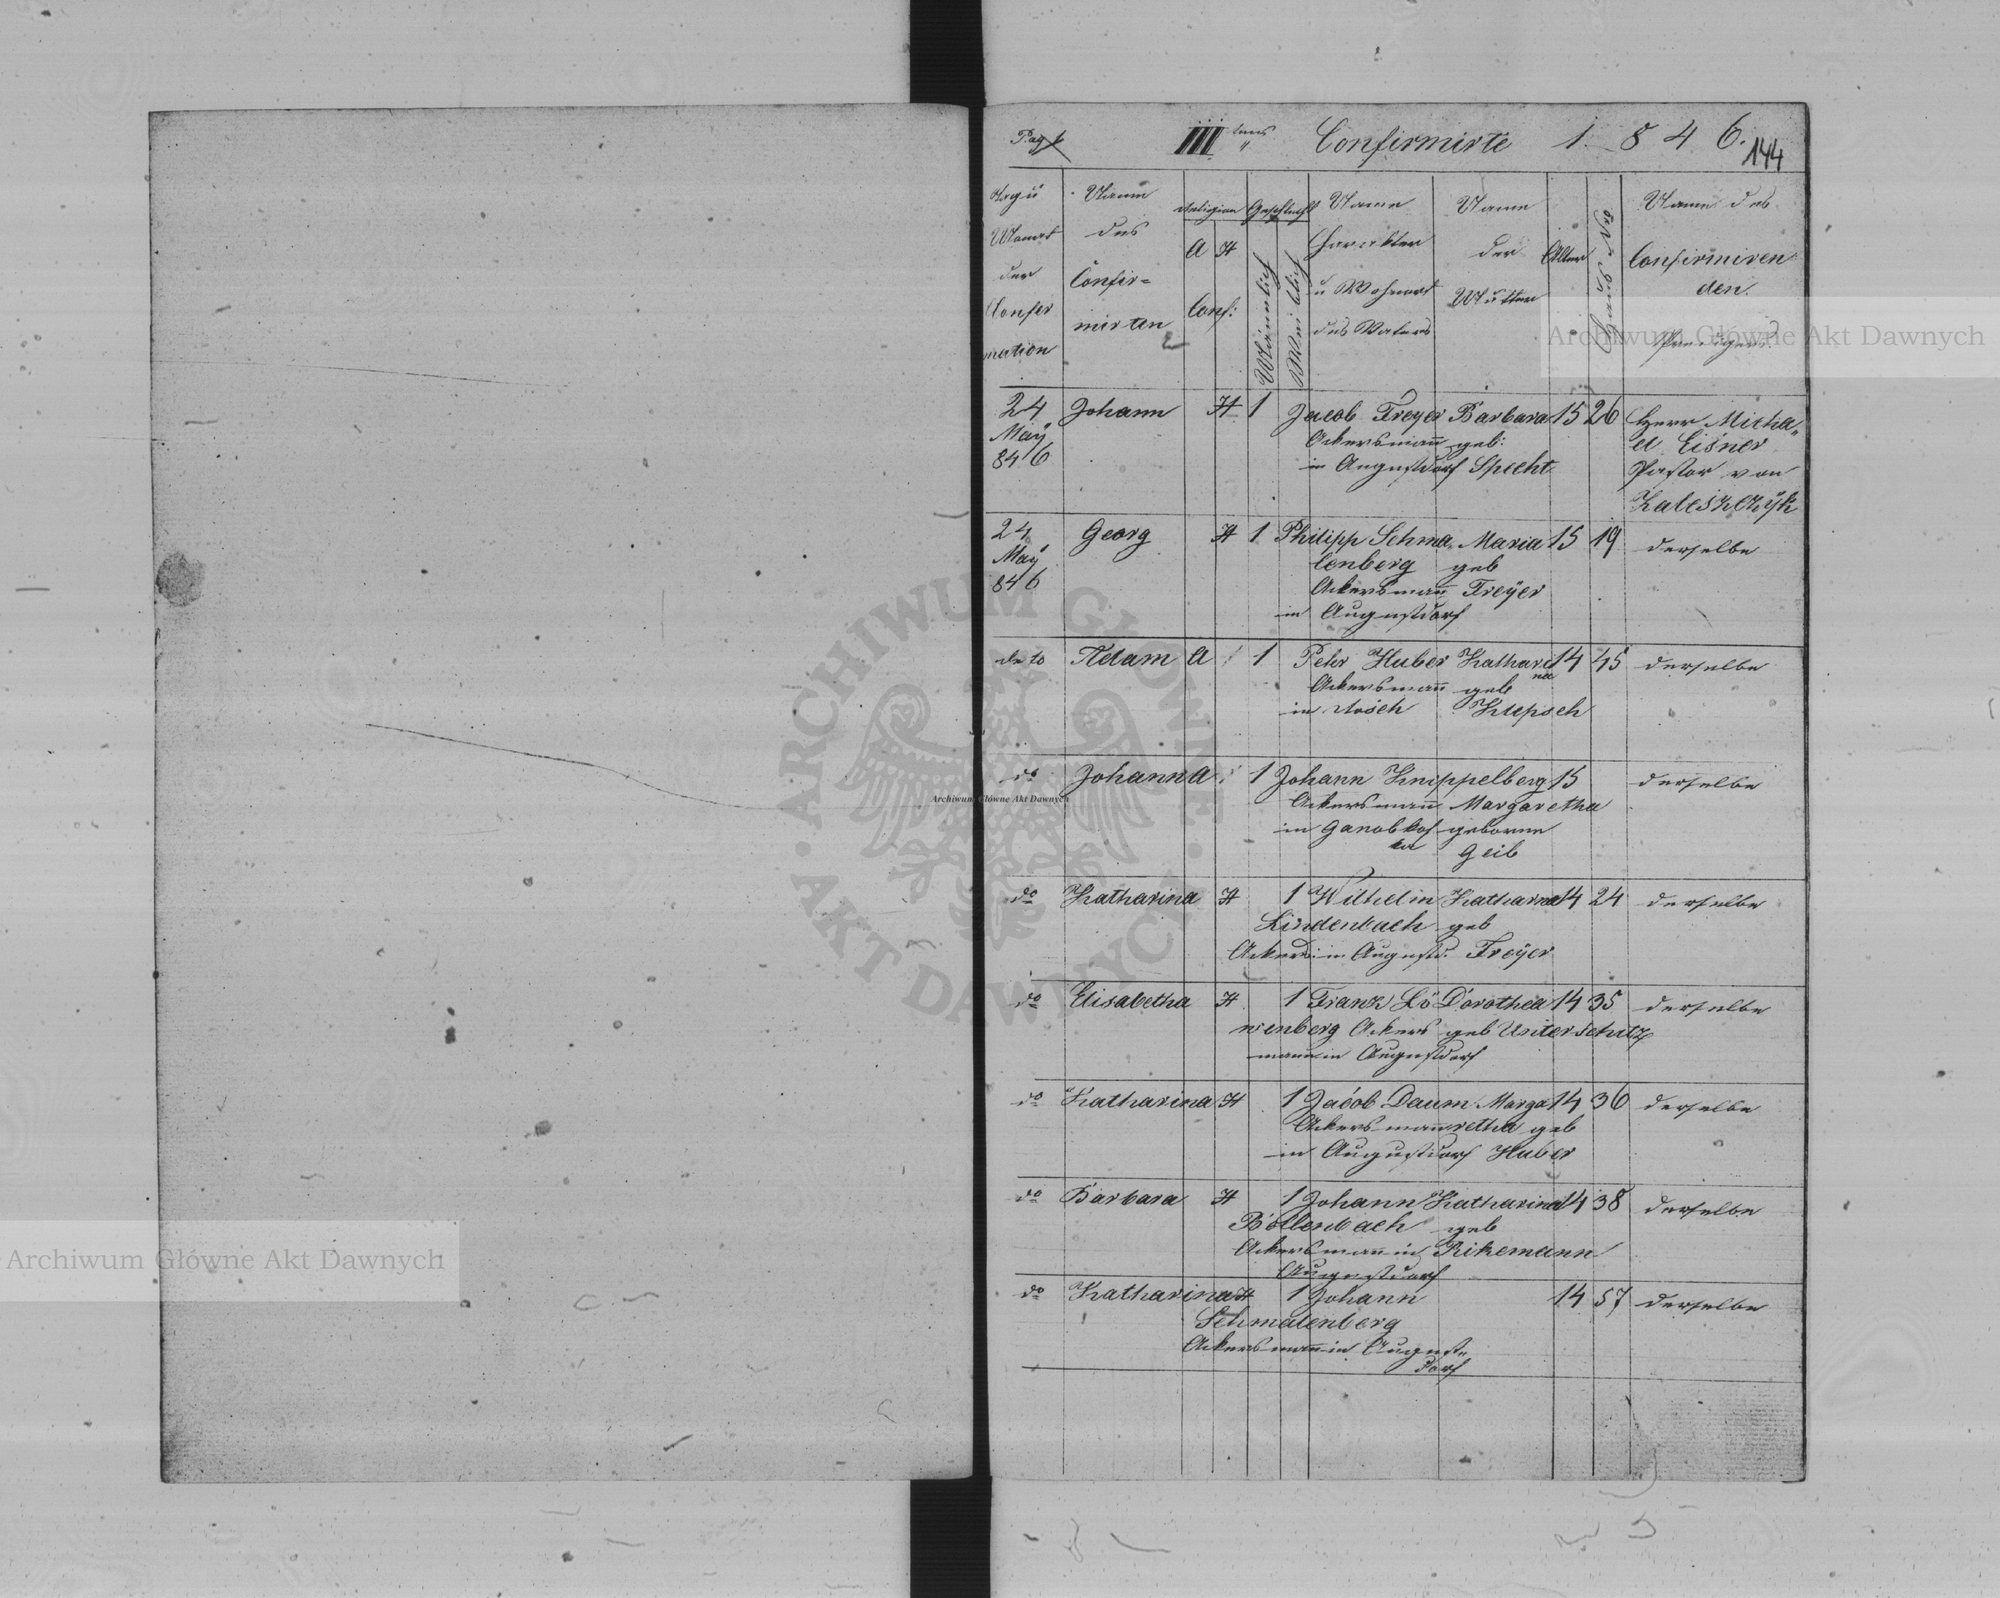 Pag
III tens Confirmirte 1 8 4 6.
144
Tag u
Monat
der
Confir
mation
Name
des
Confir=
mirten
Religion
A H
Conf:
Geschlecht
Männlich
Weiblich
Name
Charakter
u Wohnort
des Vaters
Name
der
Mutter
Alter
Haus Nro
Name des
Confirmiren
den
Predigers
24 Johann H 1 Jacob Freyer Barbara 15 26 Herr Micha=
May Ackersmann geb: el Eisner
846 in Augustdorf Specht Pastor von
Zaleszczyk
24 Georg H 1 Philipp Schma= Maria 15 19 derselbe
May lenberg geb
846 Ackersmann Freÿer
in Augustdorf
deto Adam A 1 Peter Huber Kathari 14 45 derselbe
Ackersmann geb na
in Rosch Klepsch
do Johann A 1 Johann Knippelberg 15 derselbe
Ackersmann Margaretha
in geborne
Geib
do Katharina H 1 Wilhelm Katharina 14 24 derselbe
Lindenbach geb
Ackers: in Augustd. Freÿer
do Elisabetha H 1 Franz Lö Dorothea 14 35 derselbe
wenberg Ackers geb Unterschütz
mann in Augustdorf
do Katharina H 1 Jacob Daum Marga 14 36 derselbe
Ackersmann retha geb
in Augustdorf Huber
do Barbara H 1 Johann Katharina 14 38 derselbe
Bollenbach geb
Ackersmann in Rikemann
Augustdorf
do Katharina H 1 Johann 14 57 derselbe
Schmalenberg
Ackersmann in August=
dorf
Archiwum Główne Akt Dawnych
Archiwum Główne Akt Dawnych
Archiwum Główne Akt Dawnych
ARCHIWUM GŁÓWNE · AKT DAWNYCH ·